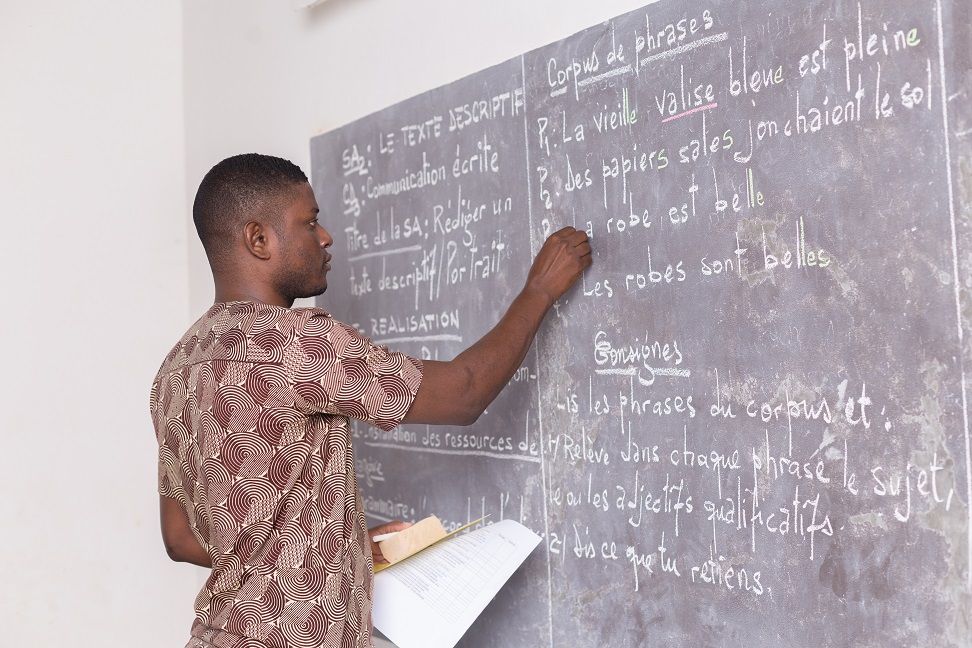 SA2: LE TEXTE DESCRIPTIF
Communication écrite
Titre de la SA: Rédiger un
texte descriptif/Portrait
REALISATION
des ressources de
Corpus de phrases
P1: La vieille valise bleue est pleine
P2: Des papiers sales jonchaient le sol
La robe est belle
Les robes sont belles
Consignes
Lis les phrases du corpus et:
1/ Relève dans chaque phrase le sujet,
le ou les adjectifs qualificatifs.
2/ Dis ce que tu retiens.